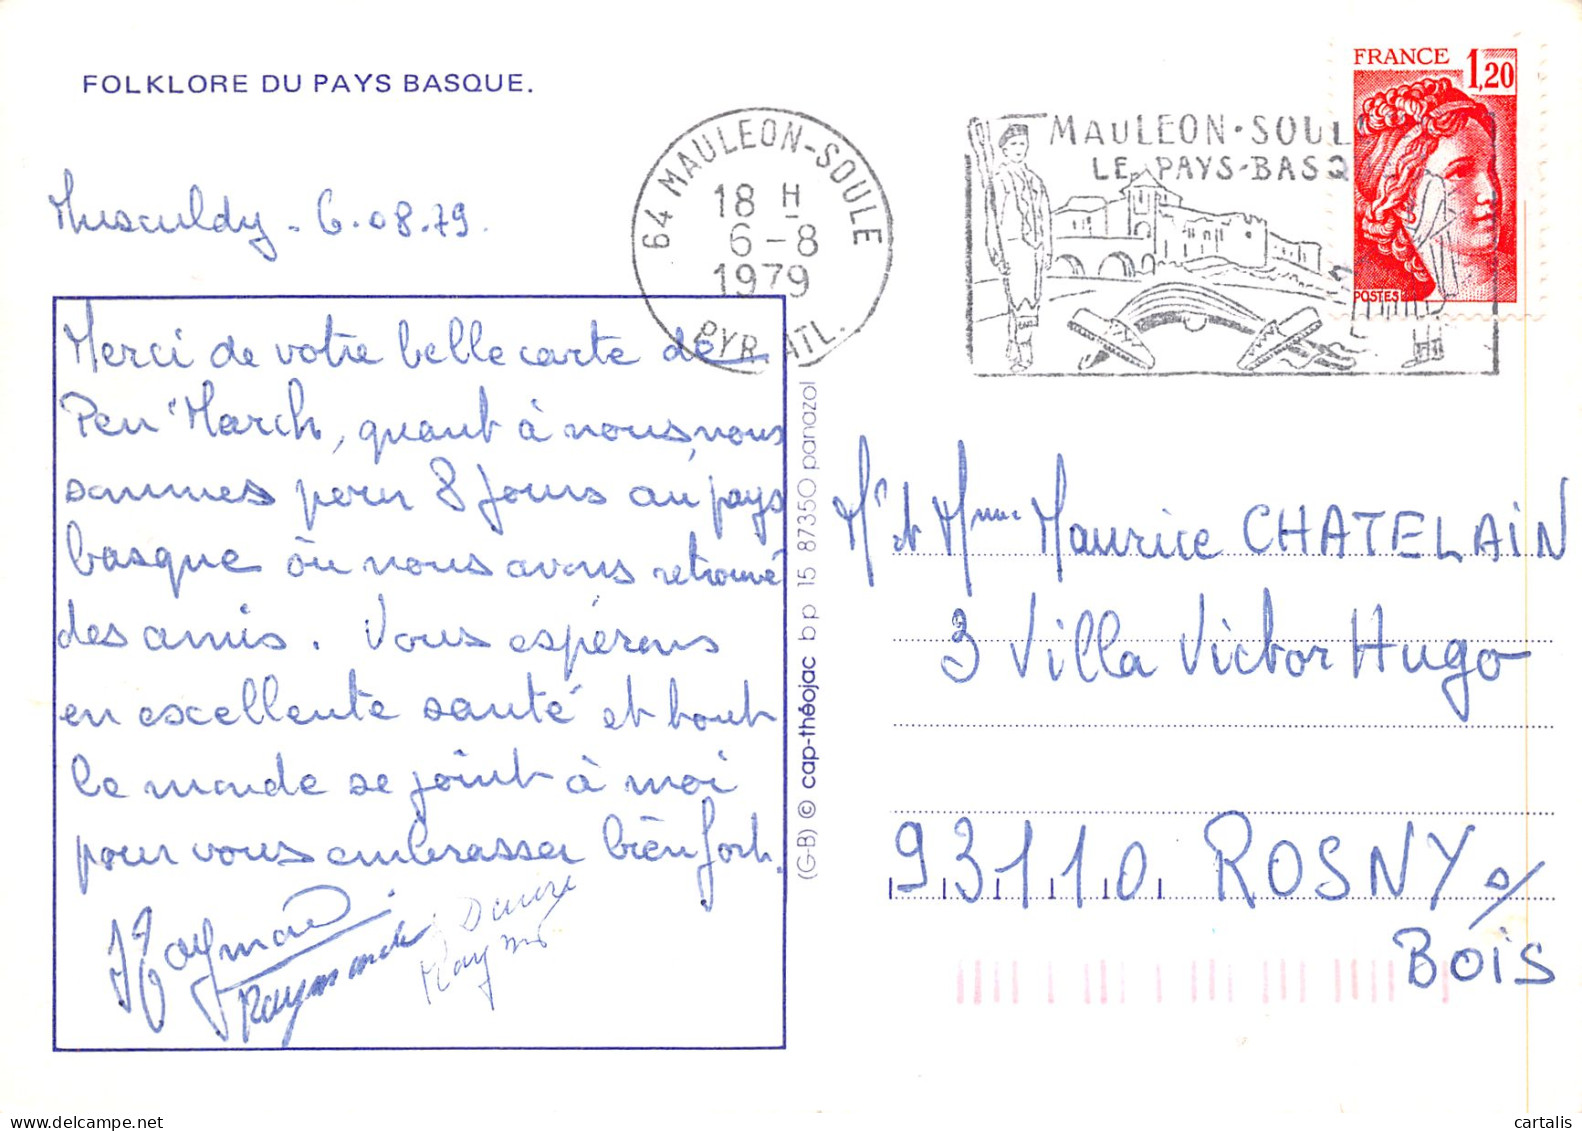 FOLKLORE DU PAYS BASQUE.
Musculdy - 6.08.79.
Merci de votre belle carte de
Pen'March, quant à nous, nous
sommes pour 8 jours au pays
basque où nous avons retrouvé
des amis. Vous espérons
en excellente santé et tout
le monde se joint à moi
pour vous embrasser bien fort.
Raymonde
64 MAULEON-SOULE
18 H
6-8
1979
PYR. ATL.
MAULEON-SOUL
LE PAYS-BASQ
FRANCE 1,20
POSTES
(G-B) © cap-théojac bp 15 87350 panazol
Mr et Mme Maurice CHATELAIN
3 Villa Victor Hugo
93110 ROSNY s/
BOIS
cartalis